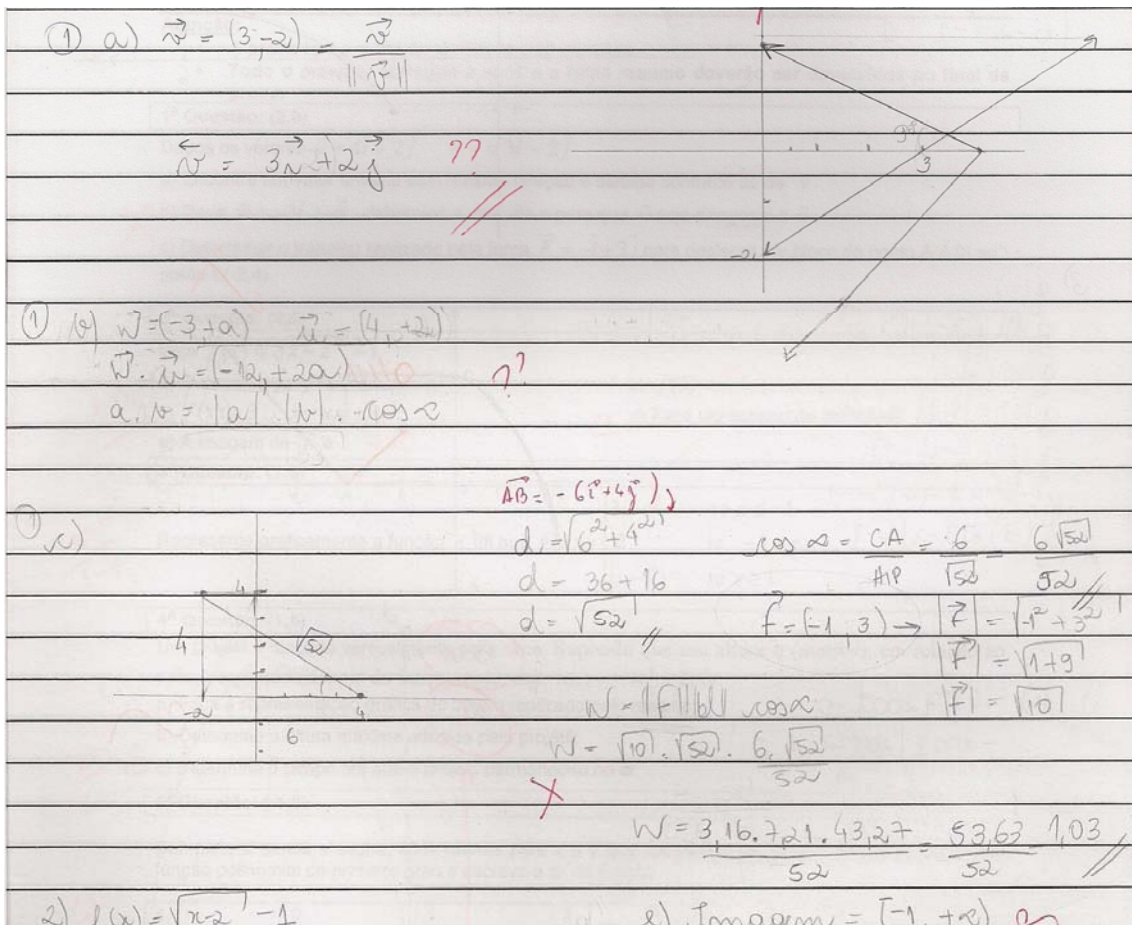 ① a) v⃗ = (3,-2) = v⃗ / ||v⃗||
v⃗ = 3i⃗ + 2j⃗ ??
3
-2
① b) w⃗ = (-3, +a) u⃗ = (4, +2)
w⃗ . u⃗ = (-12, +2a) ??
a . v = |a| . |v| . cos α
AB⃗ = -6i⃗ + 4j⃗
① c)
d = √6² + 4²
cos α = CA / HIP = 6 / √52 = 6√52 / 52
d = 36 + 16
d = √52
f⃗ = (-1, 3) → |f⃗| = √-1² + 3²
|f⃗| = √1+9
|f⃗| = √10
4
4
√52
-2
4
6
W = |f| |d| cos α
W = √10 . √52 . 6 . √52 / 52
W = 3,16 . 7,21 . 43,27 / 52 = 53,63 / 52 = 1,03
2) f(x) = √x-2 - 1
Imagem = [-1, +∞)